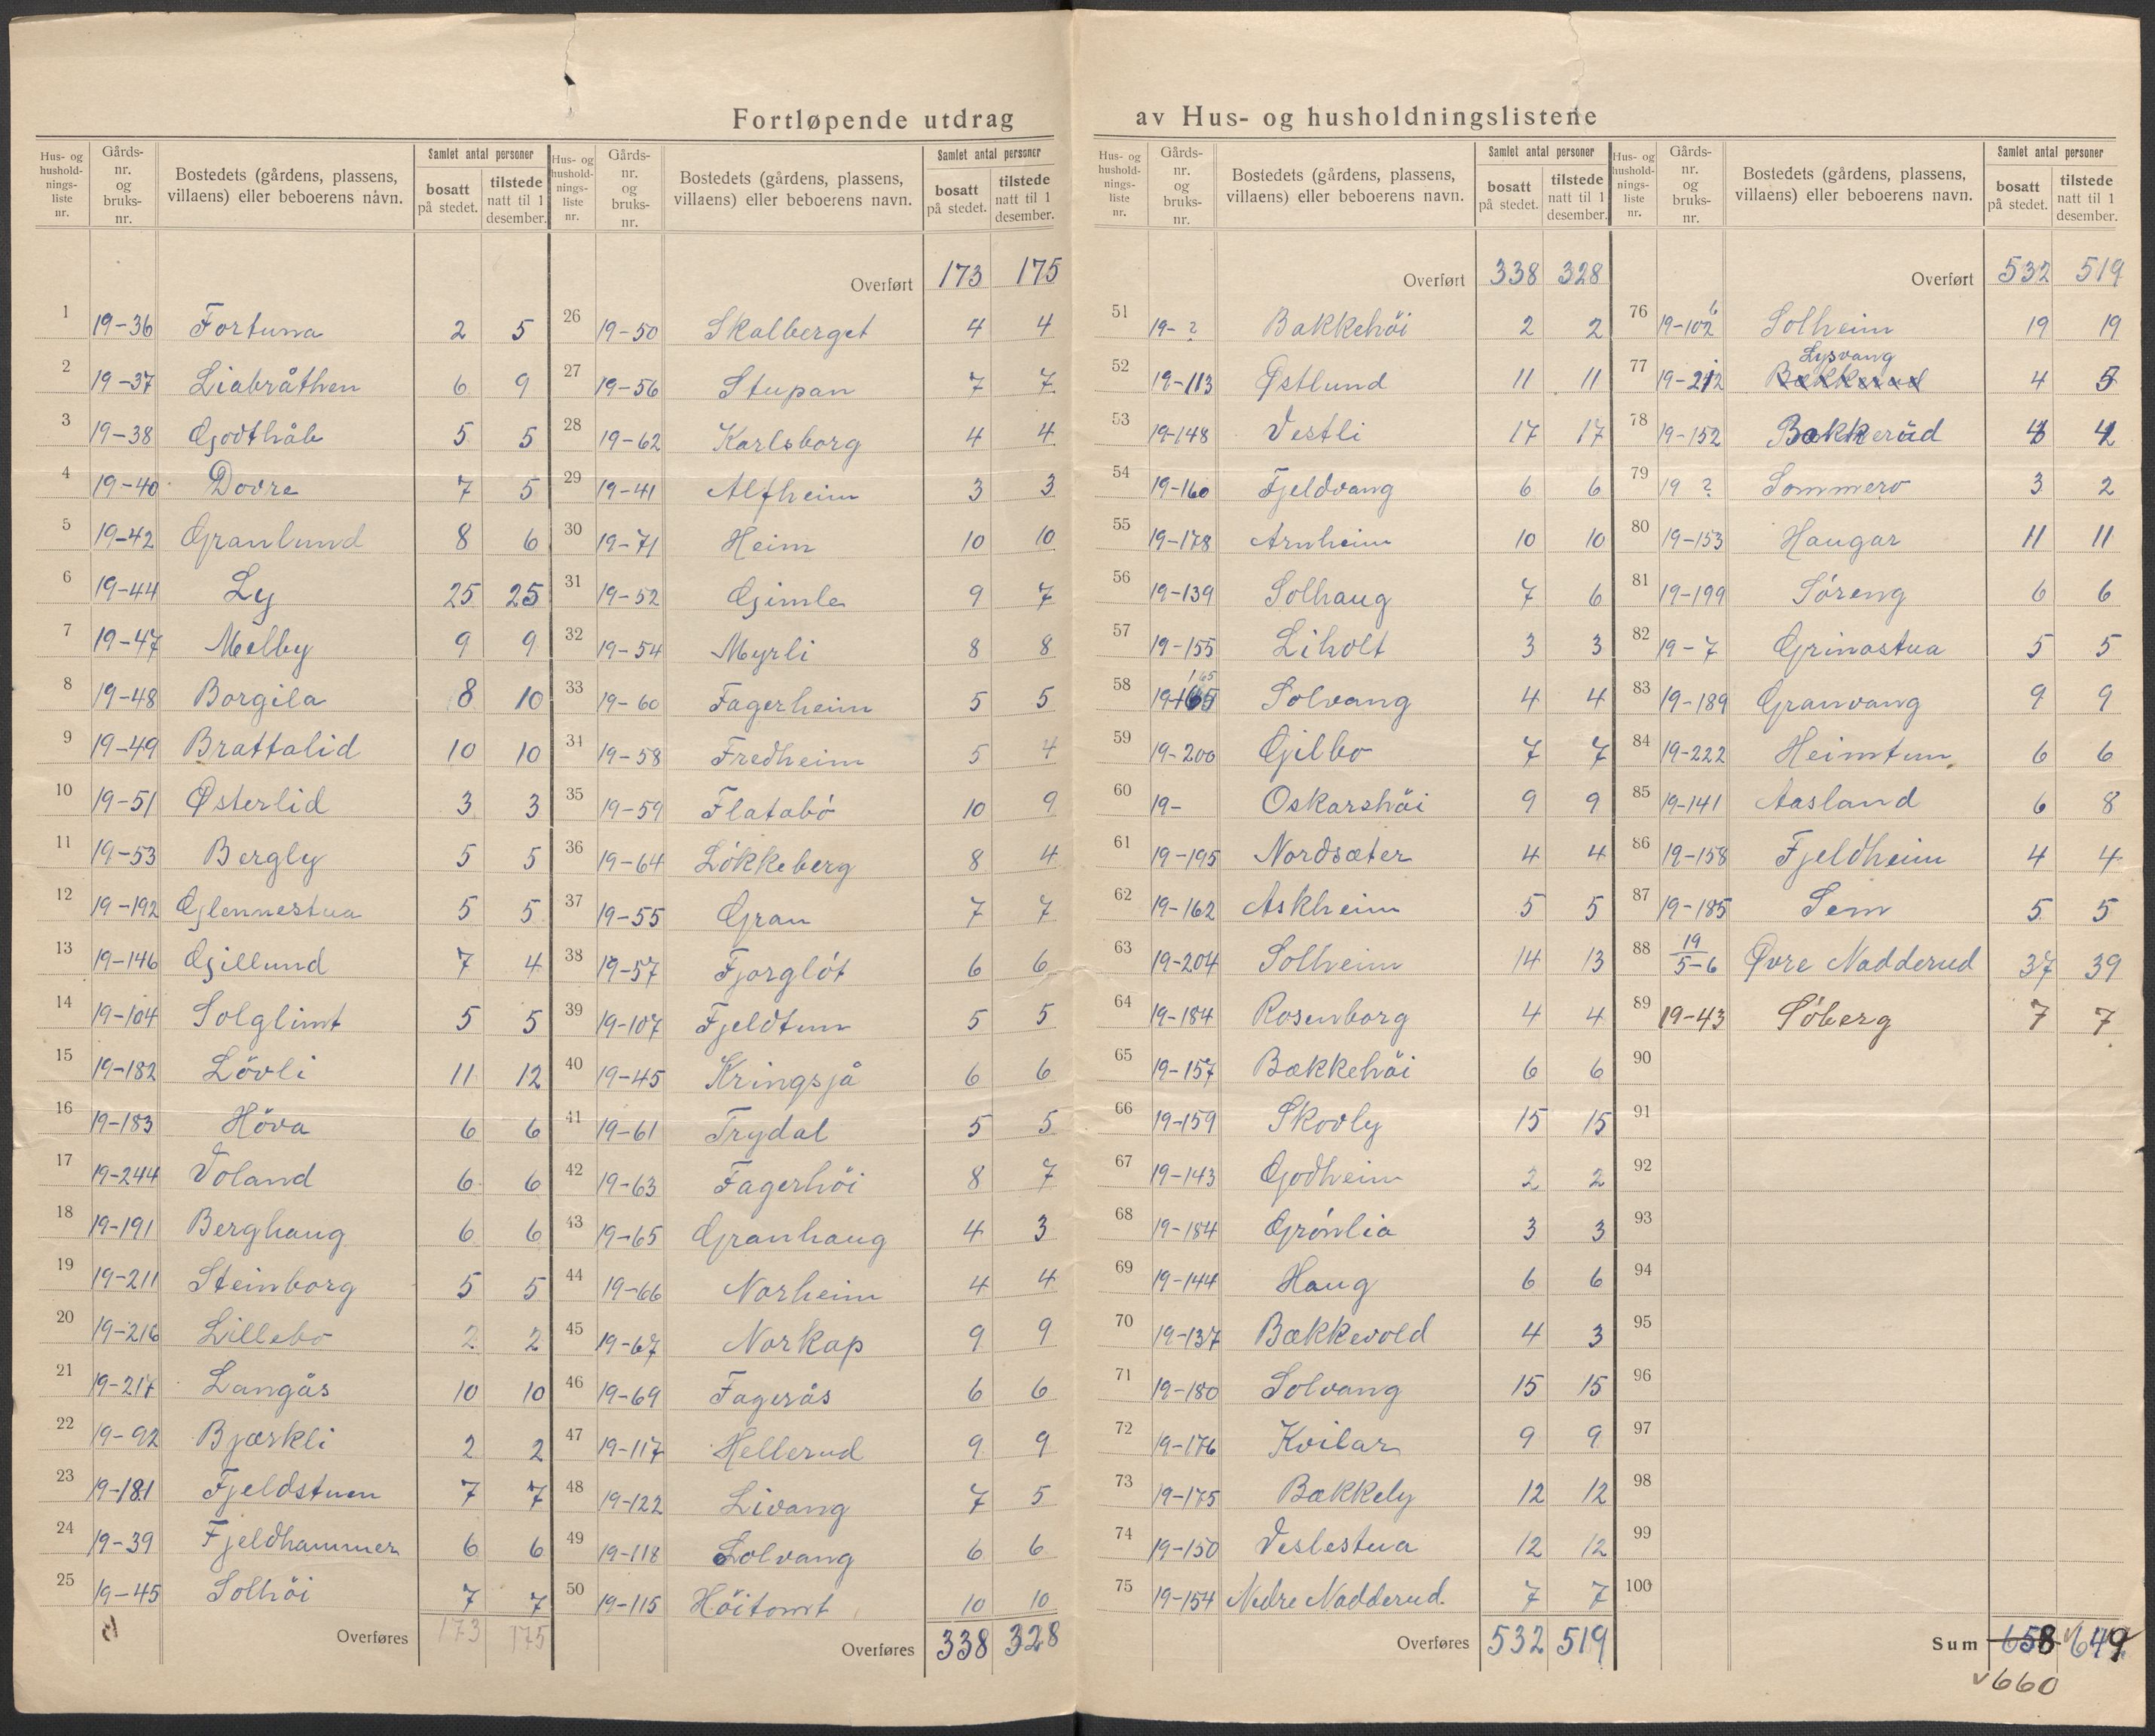 Fortløpende utdrag av Hus- og husholdningslistene
Hus- og hushold- nings- liste nr. | Gårds- nr. og bruks- nr. | Bostedets (gårdens, plassens, villaens) eller beboerens navn. | Samlet antal personer | bosatt på stedet. | tilstede natt til 1 desember.
1 19-36 Fortuna 2 5
2 19-37 Liabråthen 6 9
3 19-38 Godthåb 5 5
4 19-40 Dovre 7 5
5 19-42 Granlund 8 6
6 19-44 Ly 25 25
7 19-47 Melby 9 9
8 19-48 Borgila 8 10
9 19-49 Brattalid 10 10
10 19-51 Østerlid 3 3
11 19-53 Bergly 5 5
12 19-192 Glennestua 5 5
13 19-146 Gillund 7 4
14 19-104 Solglimt 5 5
15 19-182 Lövli 11 12
16 19-183 Höva 6 6
17 19-244 Voland 6 6
18 19-191 Berghaug 6 6
19 19-211 Steinborg 5 5
20 19-216 Lillebo 2 2
21 19-217 Langås 10 10
22 19-92 Bjærkli 2 2
23 19-181 Fjeldstuen 7 7
24 19-39 Fjeldhammer 6 6
25 19-45 Solhöi 7 7
Overføres 173 175
Hus- og hushold- nings- liste nr. | Gårds- nr. og bruks- nr. | Bostedets (gårdens, plassens, villaens) eller beboerens navn. | Samlet antal personer | bosatt på stedet. | tilstede natt til 1 desember.
Overført 173 175
26 19-50 Skalberget 4 4
27 19-56 Stupan 7 7
28 19-62 Karlsborg 4 4
29 19-41 Alfheim 3 3
30 19-71 Heim 10 10
31 19-52 Gimle 9 7
32 19-54 Myrli 8 8
33 19-60 Fagerheim 5 5
34 19-58 Fredheim 5 4
35 19-59 Flatabö 10 9
36 19-64 Lökkeberg 8 4
37 19-55 Gran 7 7
38 19-57 Fjorglöt 6 6
39 19-107 Fjeldtun 5 5
40 19-45 Kringsjå 6 6
41 19-61 Trydal 5 5
42 19-63 Fagerhöi 8 7
43 19-65 Granhaug 4 3
44 19-66 Norheim 4 4
45 19-67 Norkap 9 9
46 19-69 Fagerås 6 6
47 19-117 Hellerud 9 9
48 19-122 Livang 7 5
49 19-118 Solvang 6 6
50 19-115 Höitomt 10 10
Overføres 338 328
Hus- og hushold- nings- liste nr. | Gårds- nr. og bruks- nr. | Bostedets (gårdens, plassens, villaens) eller beboerens navn. | Samlet antal personer | bosatt på stedet. | tilstede natt til 1 desember.
Overført 338 328
51 19-? Bakkehöi 2 2
52 19-113 Østlund 11 11
53 19-148 Vestli 17 17
54 19-160 Fjeldvang 6 6
55 19-178 Arnheim 10 10
56 19-139 Solhaug 7 6
57 19-155 Liholt 3 3
58 19-165 165 Solvang 4 4
59 19-200 Gilbo 7 7
60 19- Oskarshöi 9 9
61 19-195 Nordsæter 4 4
62 19-162 Askheim 5 5
63 19-204 Solheim 14 13
64 19-184 Rosenborg 4 4
65 19-157 Bækkehöi 6 6
66 19-159 Skovly 15 15
67 19-143 Godheim 2 2
68 19-184 Grönlia 3 3
69 19-144 Haug 6 6
70 19-137 Bækkevold 4 3
71 19-180 Solvang 15 15
72 19-176 Kvilar 9 9
73 19-175 Bækkely 12 12
74 19-150 Veslestua 12 12
75 19-154 Nedre Nadderud. 7 7
Overføres 532 519
Hus- og hushold- nings- liste nr. | Gårds- nr. og bruks- nr. | Bostedets (gårdens, plassens, villaens) eller beboerens navn. | Samlet antal personer | bosatt på stedet. | tilstede natt til 1 desember.
Overført 532 519
76 19-102 6 Solheim 19 19
77 19-212 Bækkerud Lysvang 4 5
78 19-152 Bakkerud 4 4
79 19 ? Sommero 3 2
80 19-153 Haugar 11 11
81 19-199 Söreng 6 6
82 19-7 Grinastua 5 5
83 19-189 Granvang 9 9
84 19-222 Heimtun 6 6
85 19-141 Aasland 6 8
86 19-158 Fjeldheim 4 4
87 19-185 Sem 5 5
88 19/5-6 Øvre Nadderud 37 39
89 19-43 Söberg 7 7
90
91
92
93
94
95
96
97
98
99
100
Sum 658 649
660